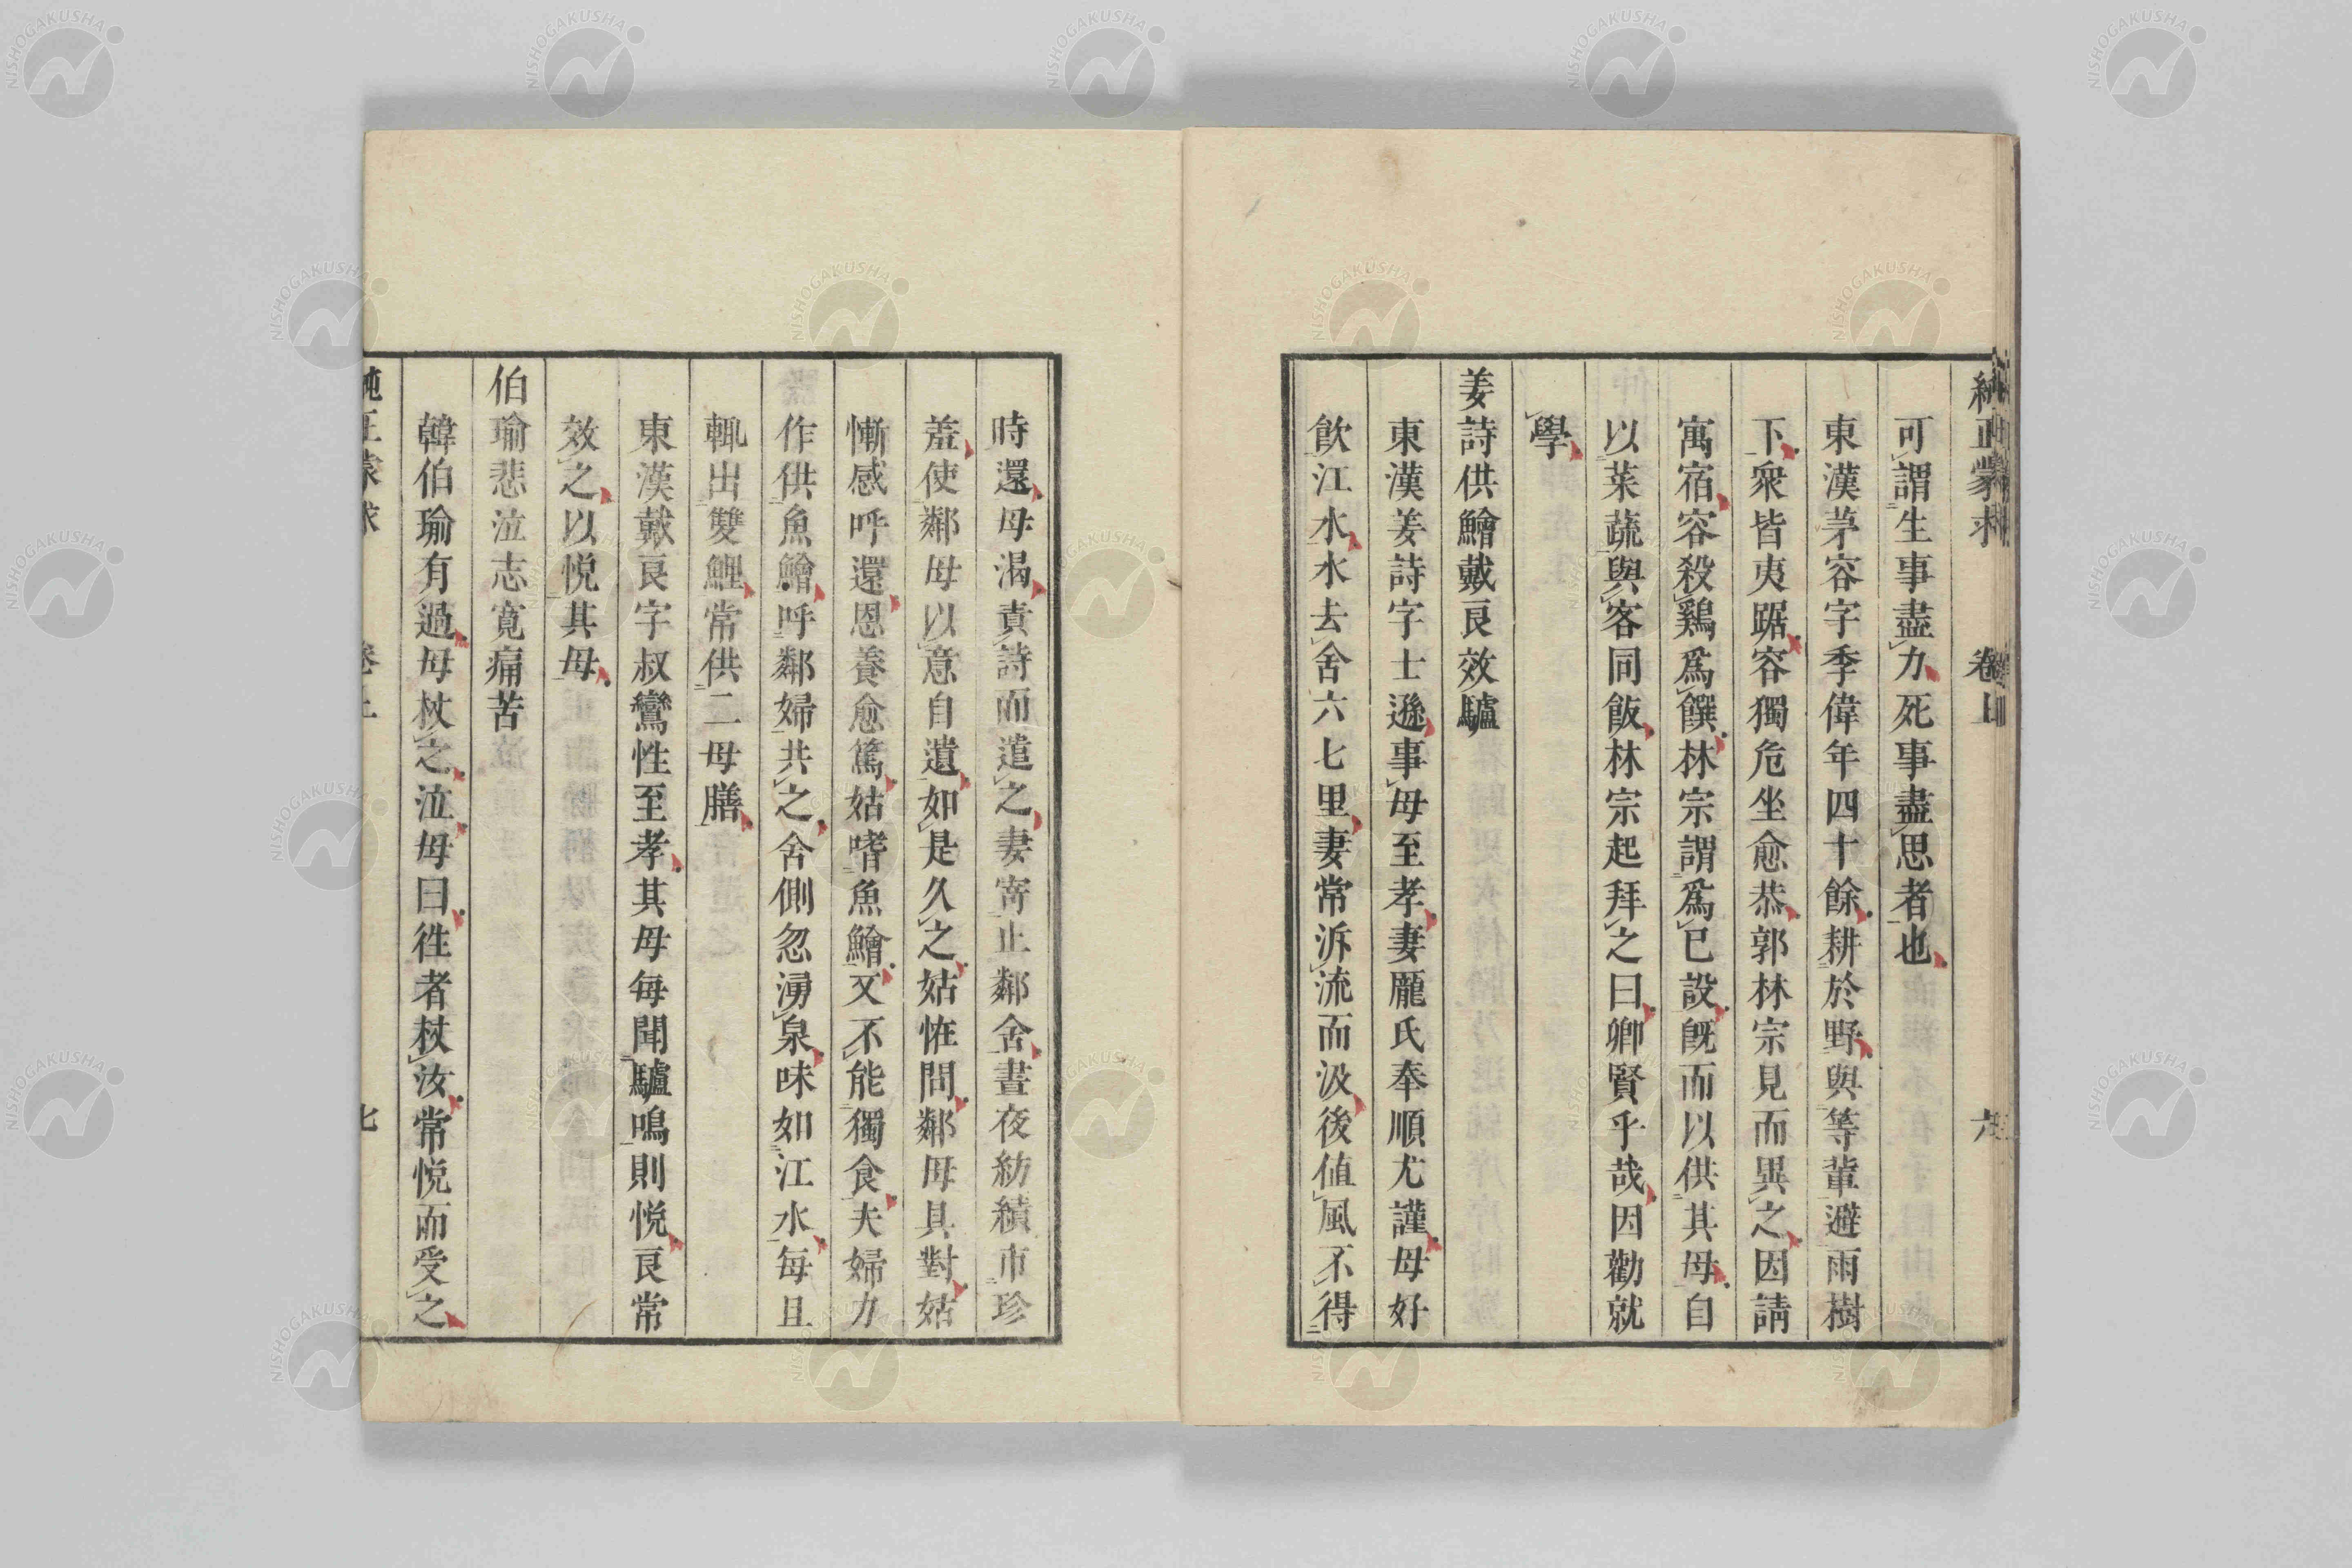 純正蒙求 卷上 六
可謂生事盡力死事盡思者也
東漢茅容字季偉年四十餘耕於野與等輩避雨樹
下衆皆夷踞容獨危坐愈恭郭林宗見而異之因請
寓宿容殺鷄爲饌林宗謂爲已設旣而以供其母自
以菜蔬與客同飯林宗起拜之曰卿賢乎哉因勸就
學
姜詩供鱠戴良效驢
東漢姜詩字士遊事母至孝妻龐氏奉順尤謹母好
飮江水水去舍六七里妻常泝流而汲後値風不得
時還母渴責詩而遣之妻寄止鄰舍晝夜紡績市珍
羞使鄰母以意自遺如是久之姑恠問鄰母具對姑
慚感呼還恩養愈篤姑嗜魚鱠又不能獨食夫婦力
作供魚鱠呼鄰婦共之舍側忽湧泉味如江水每旦
輒出雙鯉常供二母膳
東漢戴良字叔鸞性至孝其母每聞驢鳴則悅良常
效之以悅其母
伯瑜悲泣志寬痛苦
韓伯瑜有過母杖之泣母曰徃者杖汝常悅而受之
純正蒙求 卷上 七
NISHOGAKUSHA